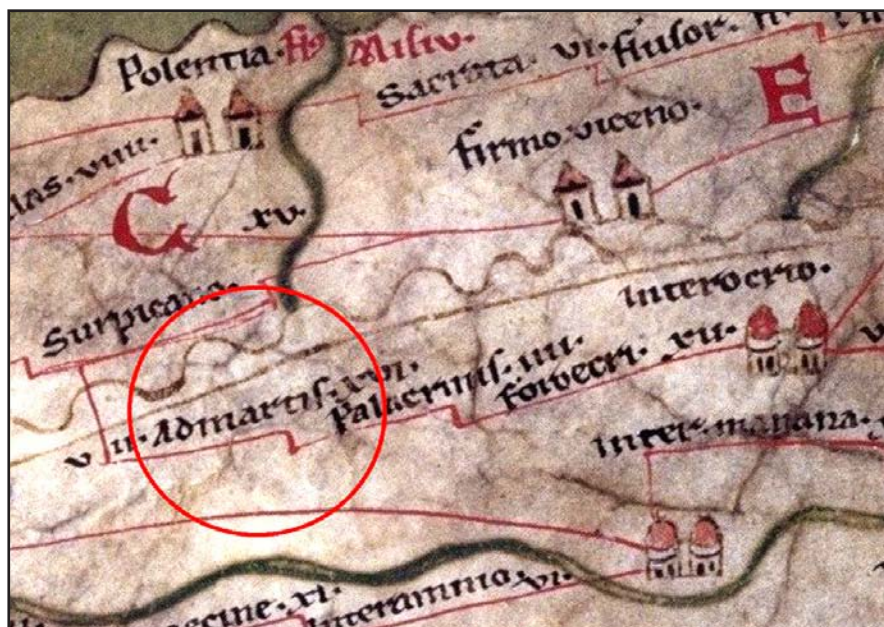 Polentia. fl. Misiu.
Sacrata. VI. fiusor. fl.
las. VIIII.
firmo viceno.
E
C
XV.
Surpicano.
Interocrio.
V II. Admartis. XVI.
Palacrinis. IIII.
foroecri. XII.
Inter. manana.
ecine. XI.
Interamnio. VI.